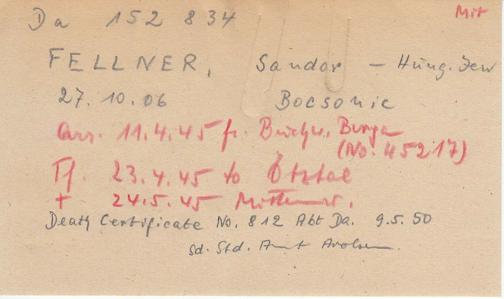 Da 152 834 Mit
FELLNER, Sandor – Hung. Jew
27.10.06 Bocsonic
arr. 11.4.45 fr. Buchw. Berga
(No. 45217)
Tf. 23.4.45 to Ötztal
+ 24.5.45
Death Certificate No. 812 Abt Da. 9.5.50
Sd. Std. Amt Arolsen.